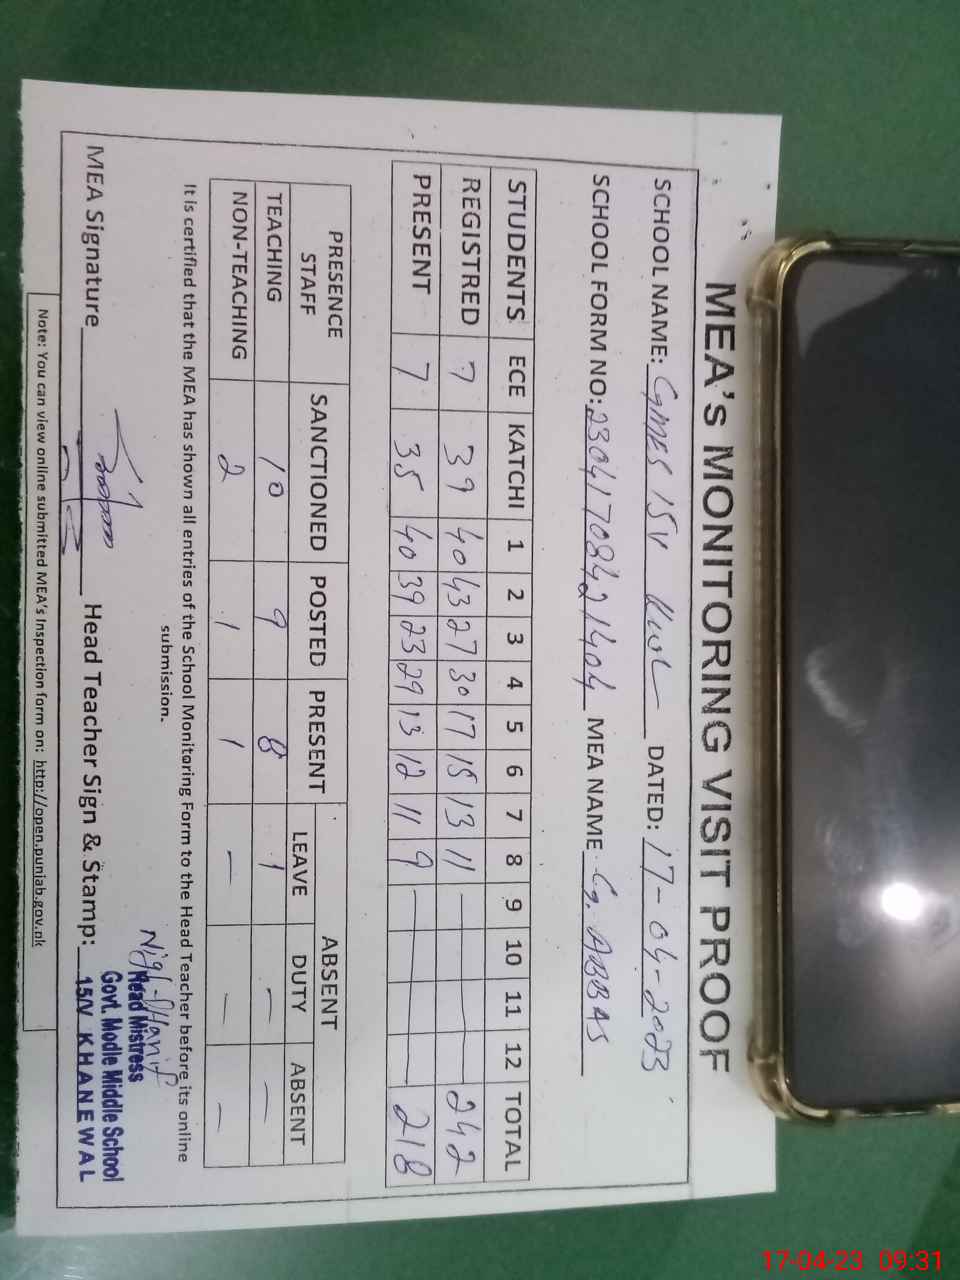 MEA's MONITORING VISIT PROOF
SCHOOL NAME: GMES 15V Kwl DATED: 17-04-2023
SCHOOL FORM NO: 23041708421404 MEA NAME G. ABBAS
STUDENTS ECE KATCHI 1 2 3 4 5 6 7 8 9 10 11 12 TOTAL
REGISTRED 7 39 40 43 27 30 17 15 13 11 — 242
PRESENT 7 35 40 39 23 29 13 12 11 9 — 218
PRESENCE STAFF SANCTIONED POSTED PRESENT ABSENT
LEAVE DUTY ABSENT
TEACHING 10 9 8 1 — —
NON-TEACHING 2 1 1 — — —
It is certified that the MEA has shown all entries of the School Monitoring Form to the Head Teacher before its online
submission.
MEA Signature Head Teacher Sign & Stamp:
Head Mistress
Govt. Modle Middle School
15/V KHANEWAL
Note: You can view online submitted MEA's Inspection form on: http://open.punjab.gov.pk
17-04-23 09:31